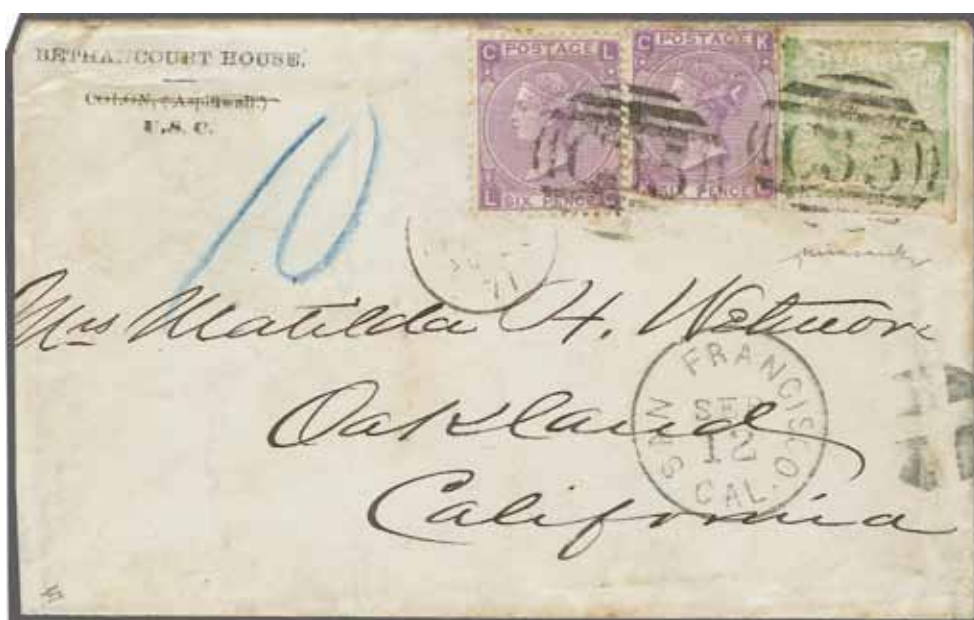 BETHANCOURT HOUSE,
COLON, (Aspinwall.)
U.S. C.
10
C POSTAGE L
L SIX PENCE C
C POSTAGE K
SIX PENCE C
C35
71
Mrs Matilda H. Wetmore
Oakland
California
SAN FRANCISCO
SEP
12
CAL.